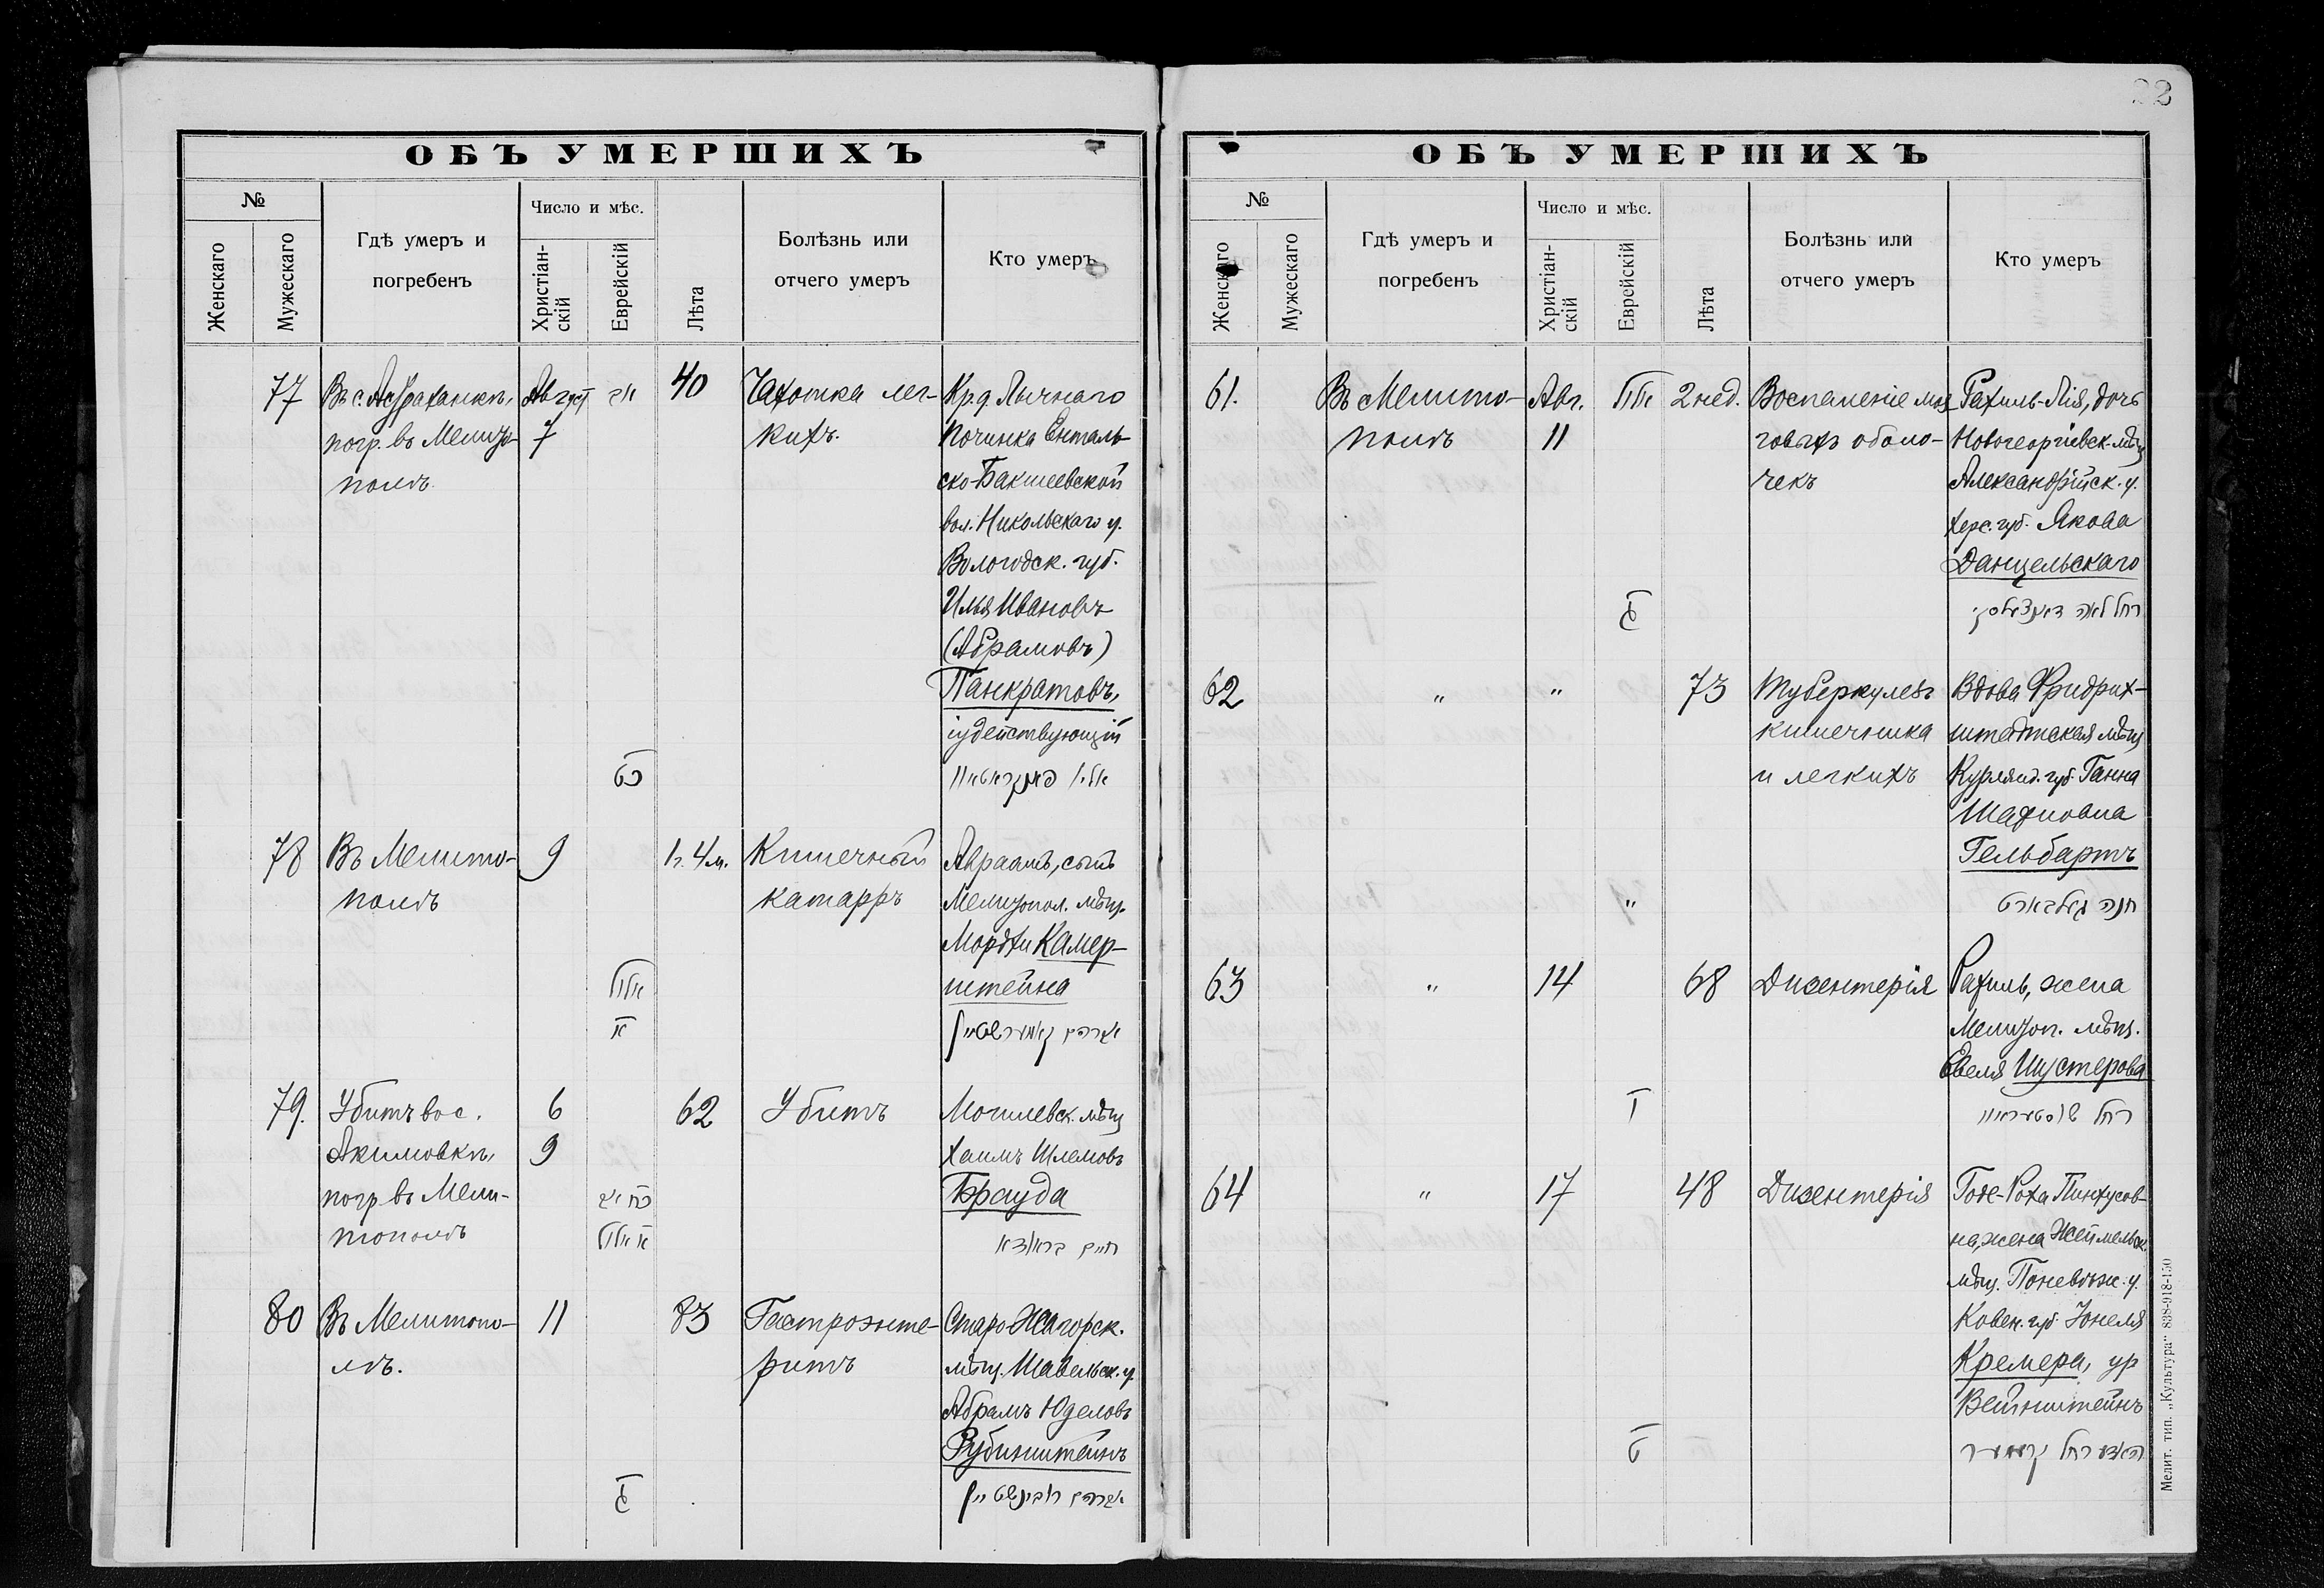 ОБЪ УМЕРШИХЪ
№
Женскаго
Мужескаго
Гдѣ умеръ и
погребенъ
Число и мѣс.
Христіан-
скій
Еврейскій
Лѣта
Болѣзнь или
отчего умеръ
Кто умеръ
77
Въ с. Астраханкѣ,
погр. въ Мелито-
полѣ
Август
7
אב
כט
40
Чахотка лег-
кихъ.
Кр. д. Лычнаго
Починка Енталь-
ско-Бакшеевской
вол. Никольскаго у.
Вологодск. губ.
Илья Ивановъ
(Абрамовъ)
Панкратовъ,
іудействующій
78
Въ Мелито-
полѣ
9
אלול
א
1 г. 4 м.
Кишечный
катарръ
Авраамъ, сынъ
Мелитопол. мѣщ.
Мордки Камер-
штейна
אברהם קאמערשטיין
79.
Убитъ въ с.
Акимовкѣ,
погр. въ Мели-
тополѣ
6
9
כח אב
א אלול
62
Убитъ
Могилевск. мѣщ
Хаимъ Шлемовъ
Брауда
חיים בראודא
80
Въ Мелитопо-
лѣ.
11
ג
83
Гастроэнте-
ритъ
Старо-Жагорск.
мѣщ. Шавельск. у.
Абрамъ Юделовъ
Рубинштейнъ
אברהם רובינשטיין
ОБЪ УМЕРШИХЪ
22
№
Женскаго
Мужескаго
Гдѣ умеръ и
погребенъ
Число и мѣс.
Христіан-
скій
Еврейскій
Лѣта
Болѣзнь или
отчего умеръ
Кто умеръ
61.
Въ Мелито-
полѣ
Авг.
11
אלול
ג
2 нед.
Воспаленіе моз-
говыхъ оболо-
чекъ
Рахиль-Лія, дочь
Новогеоргіевск. мѣщ
Александрійск. у.
Херс. губ. Якова
Данцельскаго
62
"
"
"
73
Туберкулезъ
кишечника
и легкихъ
Вдова Фридрих-
штадтская мѣщ
Курлянд. губ. Ганна
Гельбартъ
חנה געלבארט
63
"
14
ו
68
Дизентерія
Рахиль, жена
Мелитоп. мѣщ.
Евеля Шустерова
רחל שוסטעראוו
64
"
17
ט
48
Дизентерія
Годе-Роха Пинхусов-
на, жена Жеймельск.
мѣщ. Поневѣж. у.
Ковен. губ. Іонеля
Кремера, ур
Вейнштейнъ
Мелит. тип. „Культура" 838-918-150